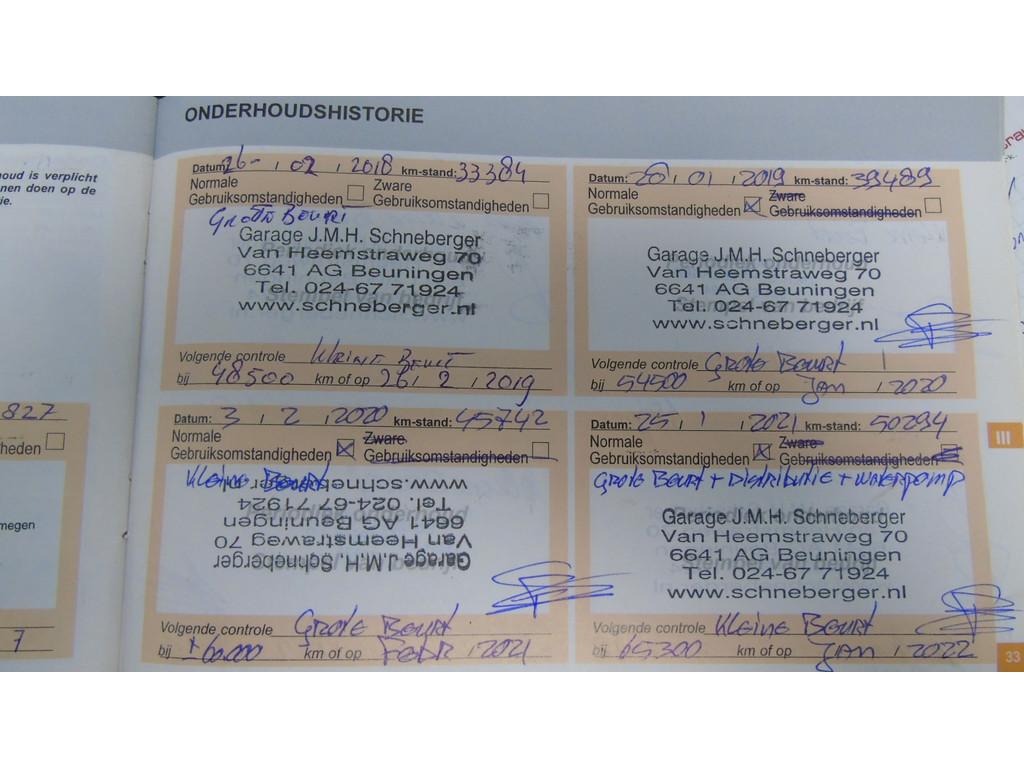 ONDERHOUDSHISTORIE
oud is verplicht
nen doen op de
ie.
Datum: 26- , 02 , 2018 km-stand: 33384
Normale
Gebruiksomstandigheden
Zware
Gebruiksomstandigheden
Grote Beurt
Garage J.M.H. Schneberger
Van Heemstraweg 70
6641 AG Beuningen
Tel. 024-67 71924
www.schneberger.nl
Volgende controle Kleine Beurt
bij 48500 km of op 26 , 2 , 2019
Datum: 28 , 01 , 2019 km-stand: 39489
Normale
Gebruiksomstandigheden
Zware
Gebruiksomstandigheden
Garage J.M.H. Schneberger
Van Heemstraweg 70
6641 AG Beuningen
Tel. 024-67 71924
www.schneberger.nl
Volgende controle Grote Beurt
bij 54500 km of op Jan , 2020
827
heden
megen
7
Datum: 3 , 2 , 2020 km-stand: 45742
Normale
Gebruiksomstandigheden
Zware
Gebruiksomstandigheden
Kleine Beurt
Garage J.M.H. Schneberger
Van Heemstraweg 70
6641 AG Beuningen
Tel. 024-67 71924
www.schneberger.nl
Volgende controle Grote Beurt
bij ± 60.000 km of op Febr , 2021
Datum: 25 , 1 , 2021 km-stand: 50294
Normale
Gebruiksomstandigheden
Zware
Gebruiksomstandigheden
Grote Beurt + Distributie + Waterpomp
Garage J.M.H. Schneberger
Van Heemstraweg 70
6641 AG Beuningen
Tel. 024-67 71924
www.schneberger.nl
Volgende controle Kleine Beurt
bij 65300 km of op Jan , 2022
III
33